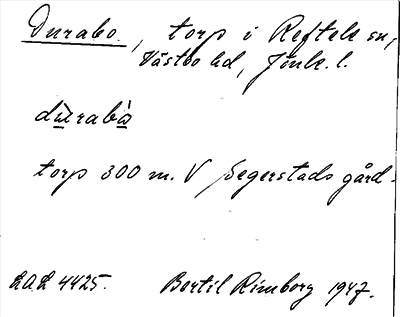 Durabo., torp i Reftele sn,
Västbo hd, Jönk. l.
dùrabò
torp 300 m. V Segerstads gård.
L.A.L 4425. Bertil Rimborg 1947.